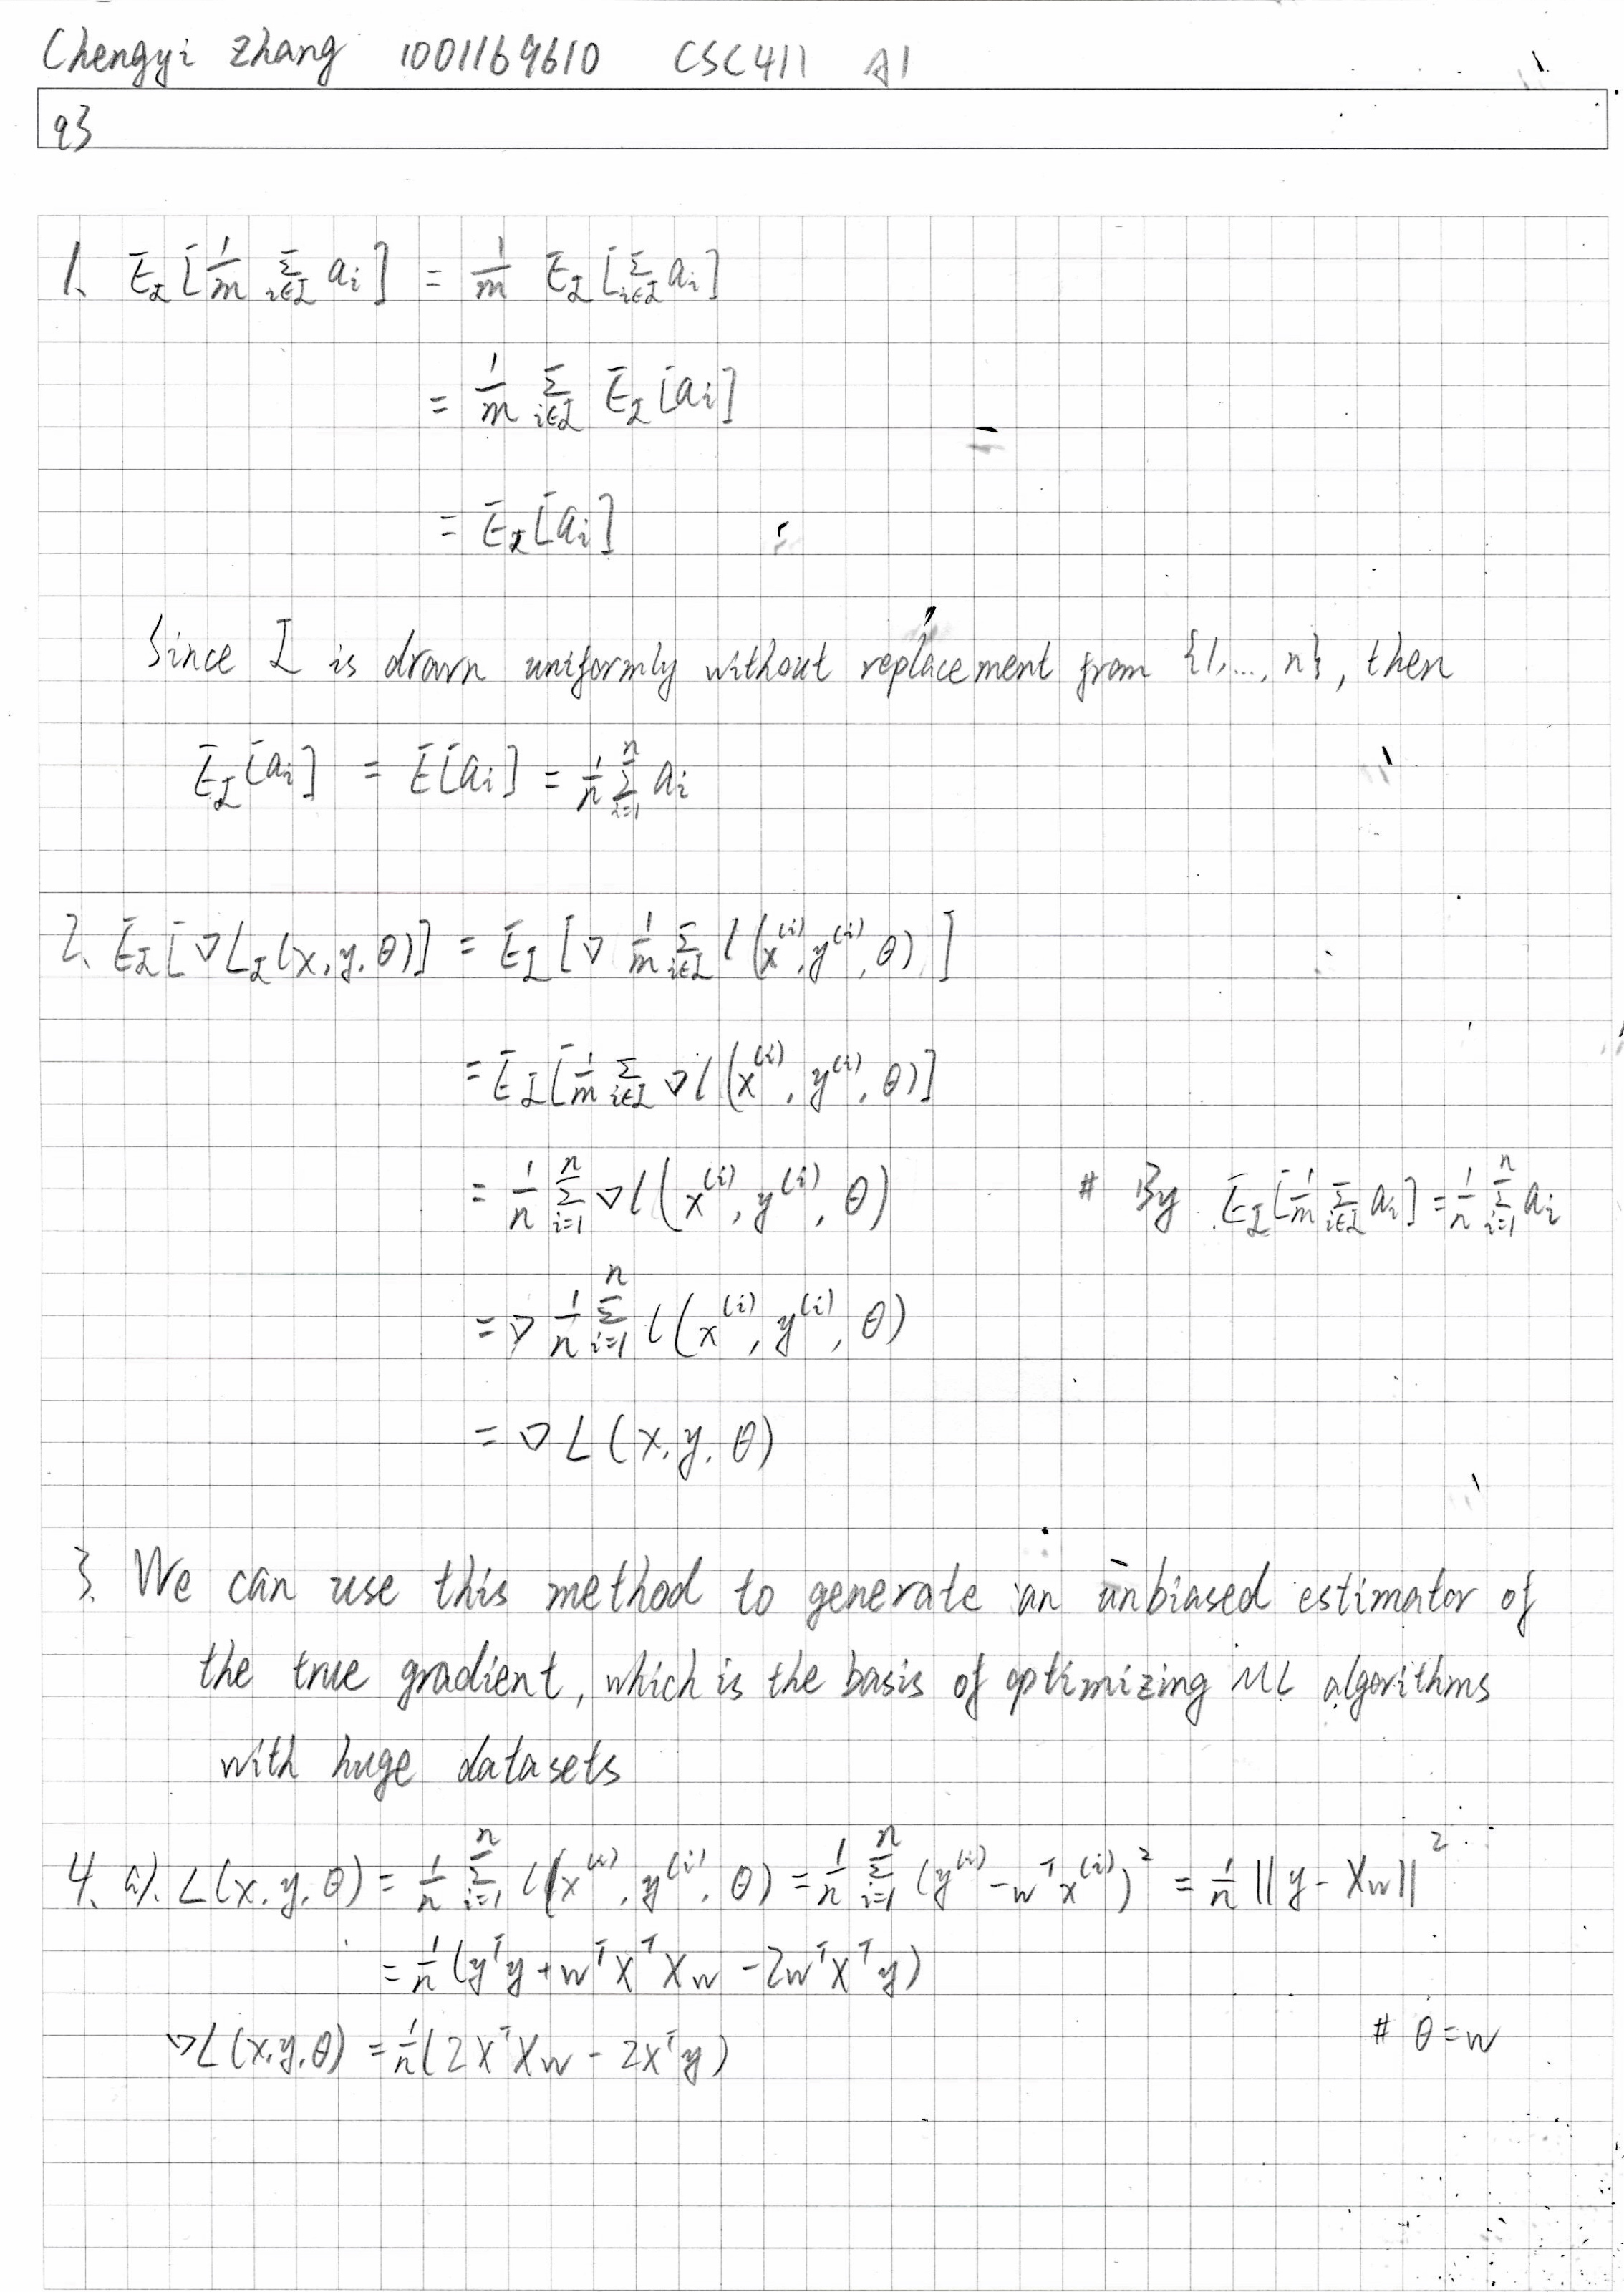 Chengyi Zhang 1001169610 CSC411 A1
q3
1. E_I[1/m Σ_{i∈I} a_i] = 1/m E_I[Σ_{i∈I} a_i]
= 1/m Σ_{i∈I} E_I[a_i]
= E_I[a_i]
Since I is drawn uniformly without replacement from {1,..., n}, then
E_I[a_i] = E[a_i] = 1/n Σ_{i=1}^n a_i
2. E_I[∇L_I(x, y, θ)] = E_I[∇ 1/m Σ_{i∈I} l(x^(i), y^(i), θ)]
= E_I[1/m Σ_{i∈I} ∇l(x^(i), y^(i), θ)]
= 1/n Σ_{i=1}^n ∇l(x^(i), y^(i), θ) # By E_I[1/m Σ_{i∈I} a_i] = 1/n Σ_{i=1}^n a_i
= ∇ 1/n Σ_{i=1}^n l(x^(i), y^(i), θ)
= ∇L(x, y, θ)
3. We can use this method to generate an unbiased estimator of
the true gradient, which is the basis of optimizing ML algorithms
with huge datasets
4. a). L(x, y, θ) = 1/n Σ_{i=1}^n l(x^(i), y^(i), θ) = 1/n Σ_{i=1}^n (y^(i) - w^T x^(i))^2 = 1/n ||y - Xw||^2
= 1/n (y^T y + w^T X^T X w - 2w^T X^T y)
∇L(x, y, θ) = 1/n (2X^T X w - 2X^T y) # θ = w